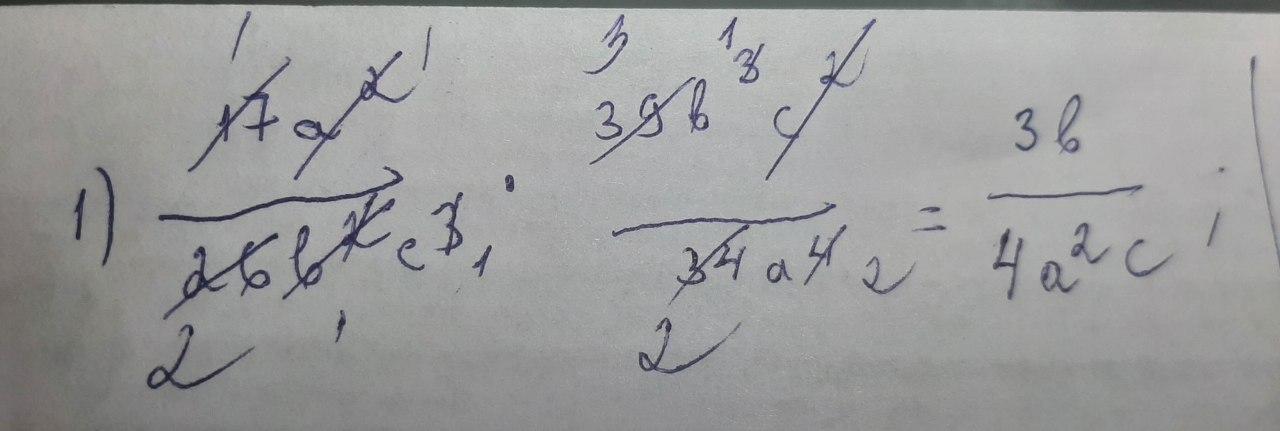 1) 17a² / 26b²c³ · 39b³c² / 34a⁴ = 3b / 4a²c ;
1 1 3 1
2 1 1 2 2